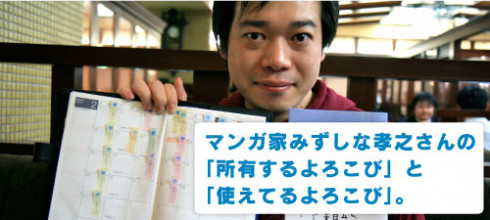 2
マンガ家みずしな孝之さんの
「所有するよろこび」と
「使えてるよろこび」。